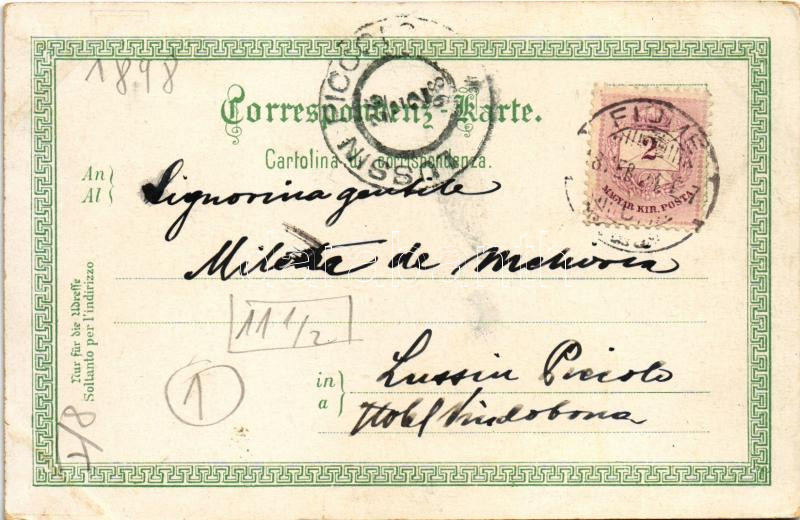 1898
LUSSIN PICCOLO
Correspondenz-Karte.
Cartolina di corrispondenza.
FIUME
2
MAGYAR KIR. POSTA
An
Al
Signorina gentile
de
Nur für die Adresse
Soltanto per l'indirizzo
11 1/2
1
in
a
Lussin Piccolo
Hotel Vindobona
4/8